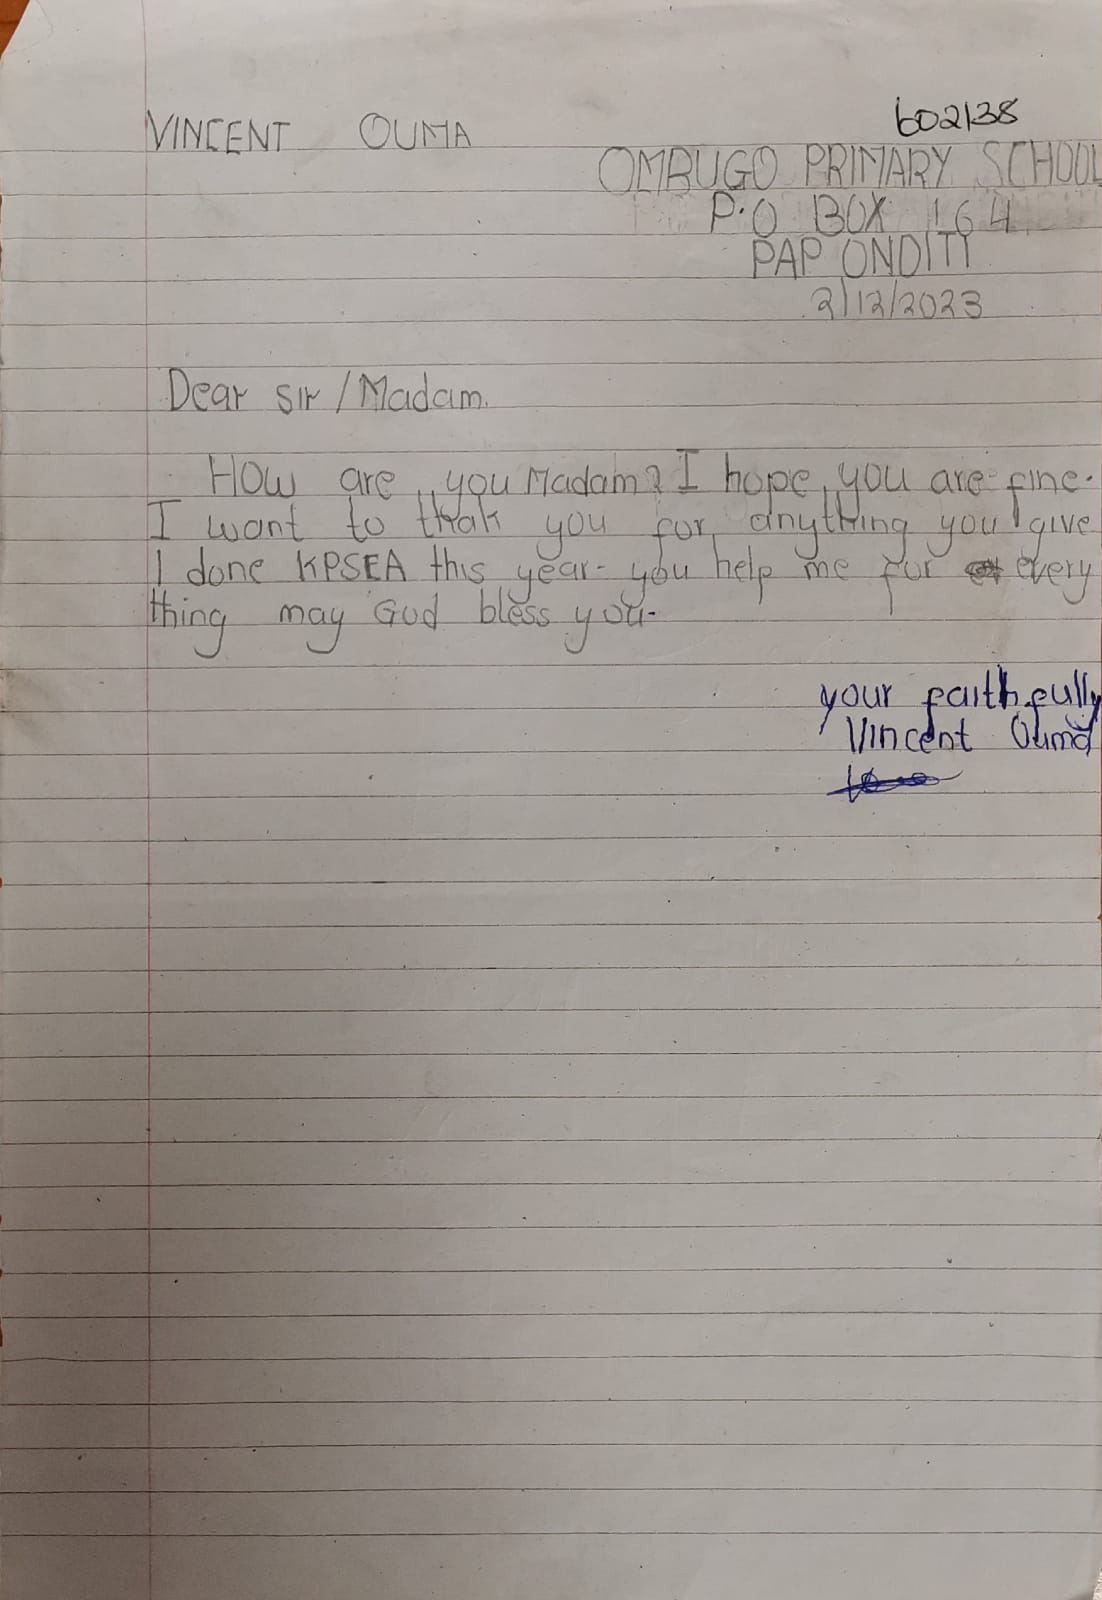 602138
VINCENT OUMA
OMBUGO PRIMARY SCHOOL
P.O BOX 164
PAP ONDITI
2/12/2023
Dear sir / Madam.
How are you Madam? I hope you are fine.
I want to thak you for anything you give
I done KPSEA this year- you help me for every
thing may God bless you-
your faithfully
Vincent Ouma